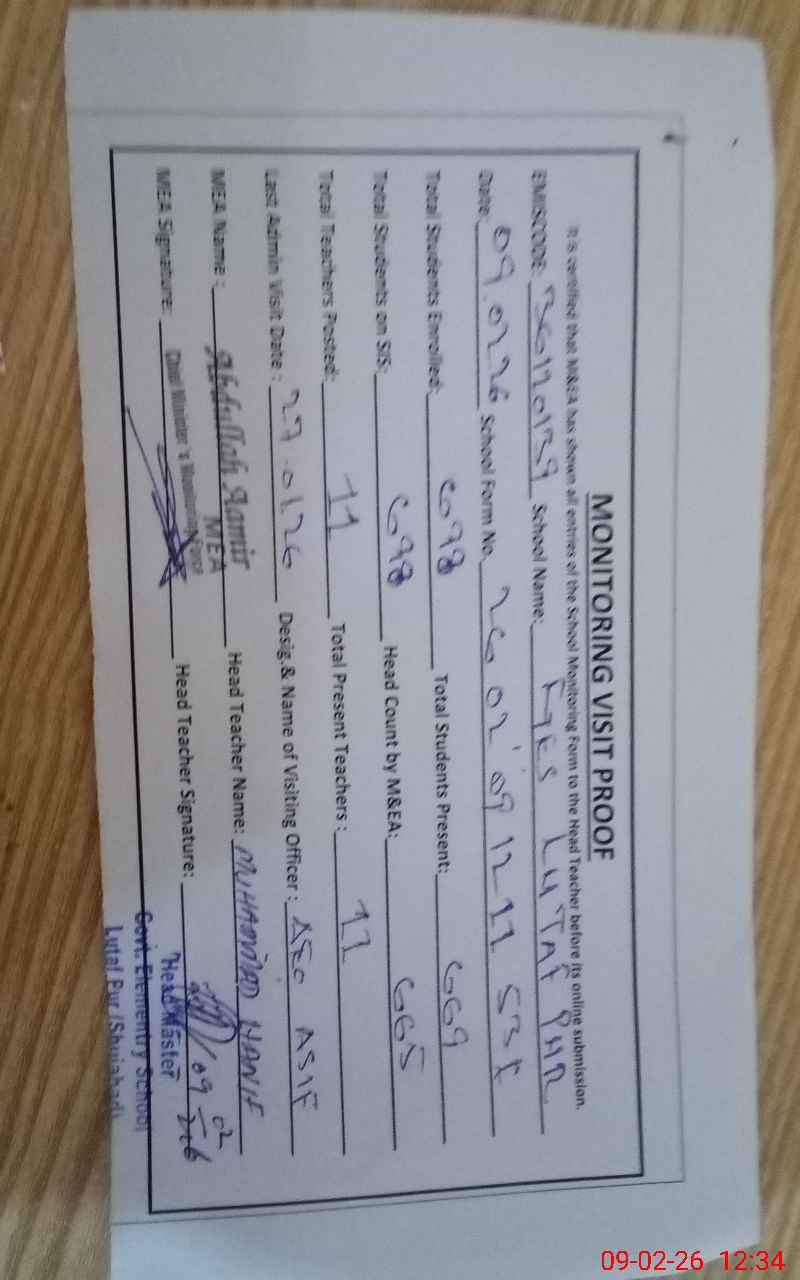 MONITORING VISIT PROOF
It is certified that M&EA has shown all entries of the School Monitoring Form to the Head Teacher before its online submission.
EMISCODE: 36120139 School Name: LUTAF PUR
Date: 09.02.26 School Form No. 26 02 09 12 11 53
Total Students Enrolled: 698 Total Students Present: 669
Total Students on SIS: 698 Head Count by M&EA: 665
Total Teachers Posted: 11 Total Present Teachers : 11
Last Admin Visit Date : 27.01.26 Desig.& Name of Visiting Officer : AEO ASIF
MEA Name : Abdullah Aamir Head Teacher Name: MUHAMMAD HANIF
MEA
Chief Minister's Monitoring Force
MEA Signature: Head Teacher Signature: 09/02
Head Master
Govt. Elementry School
Lutaf Pur (Shujabad)
09-02-26 12:34